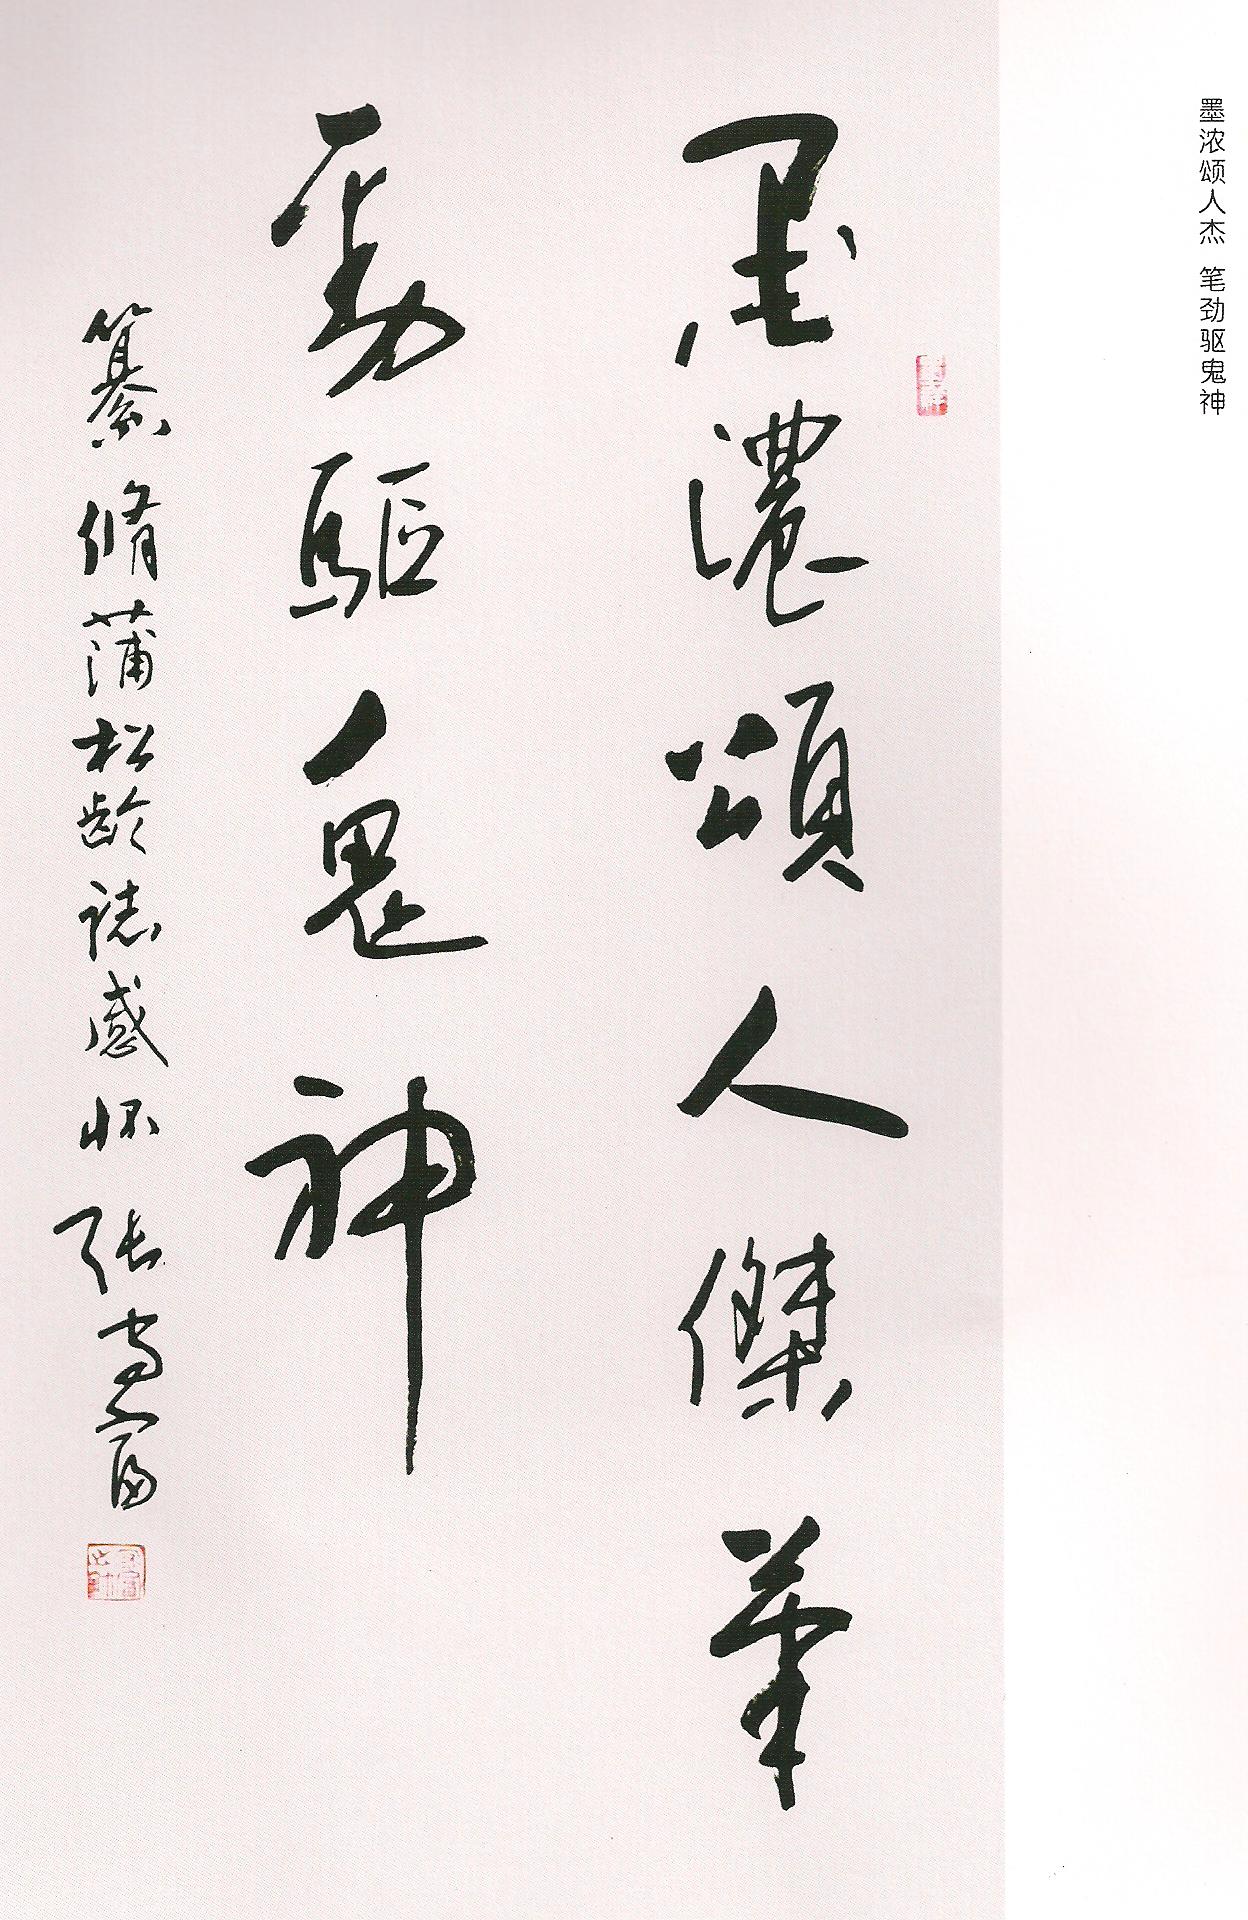 墨浓颂人杰 笔劲驱鬼神
墨濃頌人傑筆
勁驅鬼神
纂脩蒲松龄誌感怀 張守富